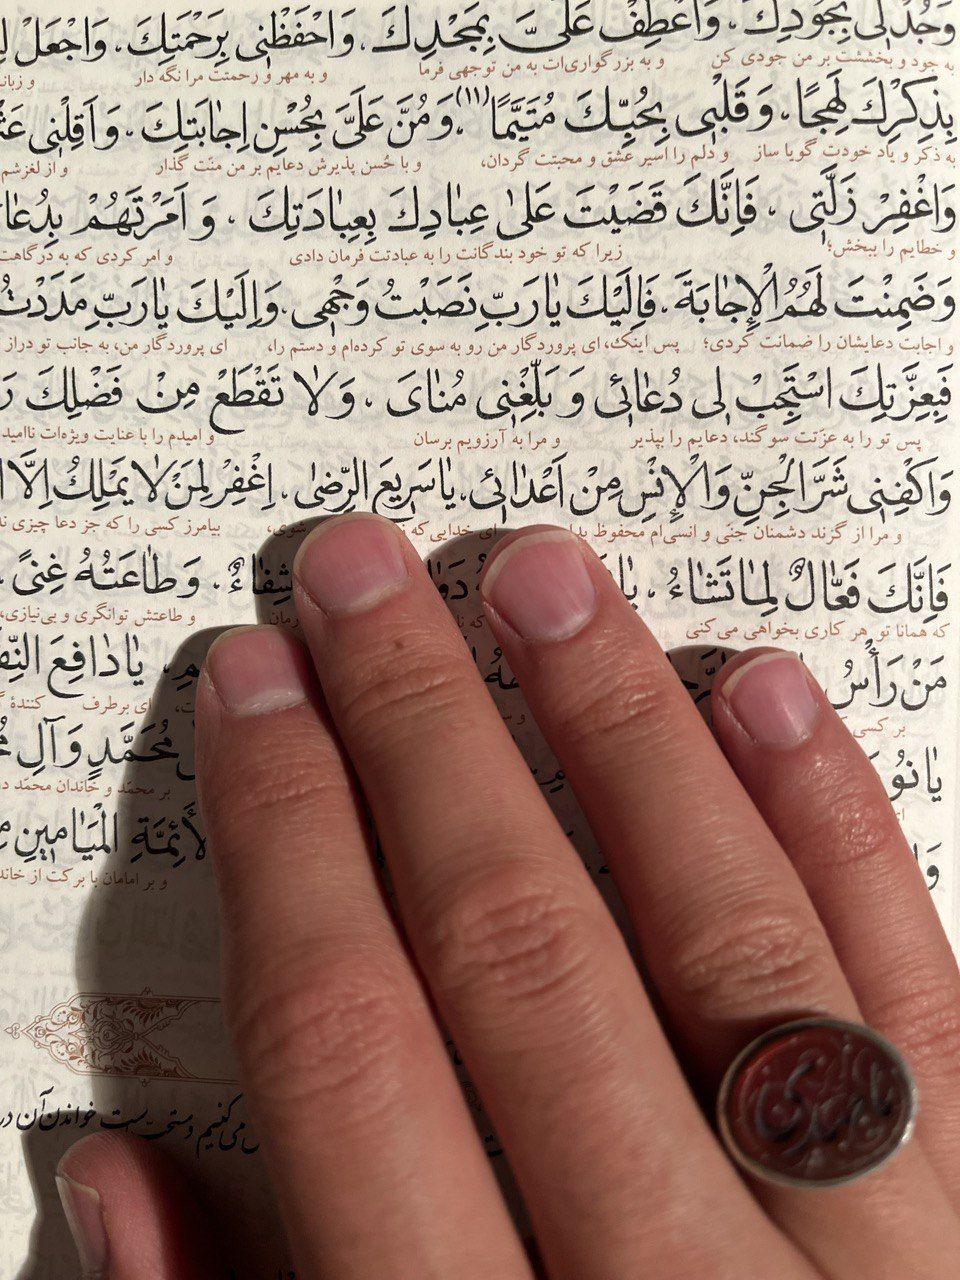 وَجُدْ لِی بِجُودِكَ، وَاعْطِفْ عَلَیَّ بِمَجْدِكَ، وَاحْفَظْنِی بِرَحْمَتِكَ، وَاجْعَلْ
به جود و بخششت بر من جودی کن و به بزرگواری‌ات به من توجهی فرما و به مهر و رحمتت مرا نگه دار و زبانم
بِذِكْرِكَ لَهِجًا، وَقَلْبِی بِحُبِّكَ مُتَیَّمًا (۱۱)، وَمُنَّ عَلَیَّ بِحُسْنِ إِجَابَتِكَ، وَأَقِلْنِی
به ذکر و یاد خودت گویا ساز و دلم را اسیر عشق و محبتت گردان، و با حُسن پذیرش دعایم بر من منّت گذار و از لغزشم
وَاغْفِرْ زَلَّتِی، فَإِنَّكَ قَضَیْتَ عَلىٰ عِبَادِكَ بِعِبَادَتِكَ، وَ أَمَرْتَهُمْ
و خطایم را ببخش؛ زیرا که تو خود بندگانت را به عبادتت فرمان دادی و امر کردی که به درگاهت
وَضَمِنْتَ لَهُمُ الْإِجَابَةَ، فَإِلَیْكَ یٰا رَبِّ نَصَبْتُ وَجْهِی، وَإِلَیْكَ یٰا رَبِّ مَدَدْتُ
و اجابت دعایشان را ضمانت کردی؛ پس اینک، ای پروردگار من رو به سوی تو کرده‌ام و دستم را، ای پروردگار من، به جانب تو دراز
فَبِعِزَّتِكَ اسْتَجِبْ لِی دُعٰائِی وَ بَلِّغْنِی مُنٰایَ، وَلٰا تَقْطَعْ مِنْ فَضْلِكَ
پس تو را به عزّتت سوگند، دعایم را بپذیر و مرا به آرزویم برسان و امیدم را با عنایت ویژه‌ات ناامید
وَاكْفِنِی شَرَّ الْجِنِّ وَالْإِنْسِ مِنْ أَعْدٰائِی، یٰا سَرِیعَ الرِّضٰی، اِغْفِرْ لِمَنْ لٰا یَمْلِكُ إِلَّا
و مرا از گزند دشمنان جنّی و انسی‌ام محفوظ ای خدایی که شوی، بیامرز کسی را که جز دعا چیزی
فَإِنَّكَ فَعَّالٌ لِمٰا تَشٰاءُ، شِفٰاءٌ، وَ طٰاعَتُهُ غِنىً،
که همانا تو هر کاری بخواهی می‌کنی و طاعتش توانگری و بی‌نیازی،
مَنْ رَأْسُ یٰا دٰافِعَ
بر کسی ای برطرف کنندهٔ
مُحَمَّدٍ وَآلِ
بر محمّد و خاندان محمّد
الْمَیٰامِینِ
و بر امامان با برکت از
می‌کنیم و مستحبّ است خواندن آن در
یا مهدی